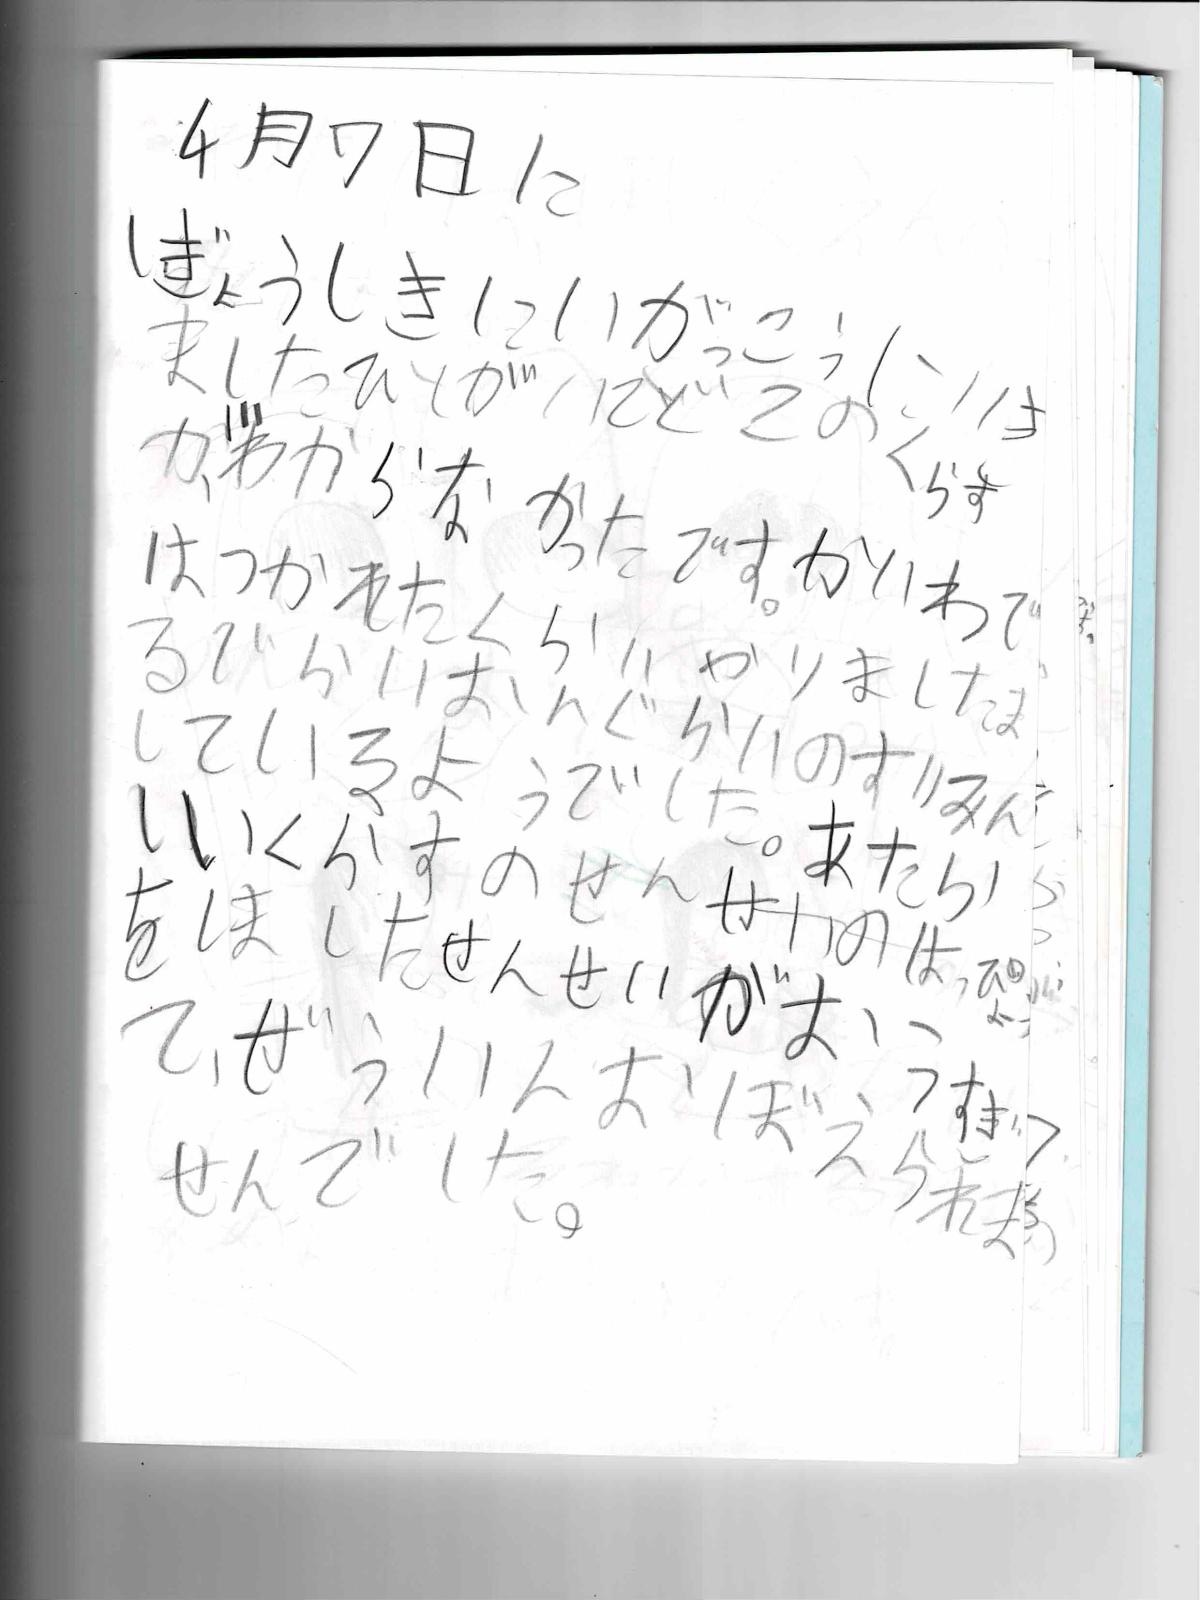 4月7日に
しぎょうしきにいがっこうにいは
ましたひとがいてどどこのくらす
がわからなかったです。かいわで
はつかれたくらいかりましたま
るでからはんぐらいのすいみん
しているようでした。あたらし
いいくらすのせんせいのはっぴょう
をしましたせんせいがおいっすぎって
て、ぜういんおぼえられま
せんでした。